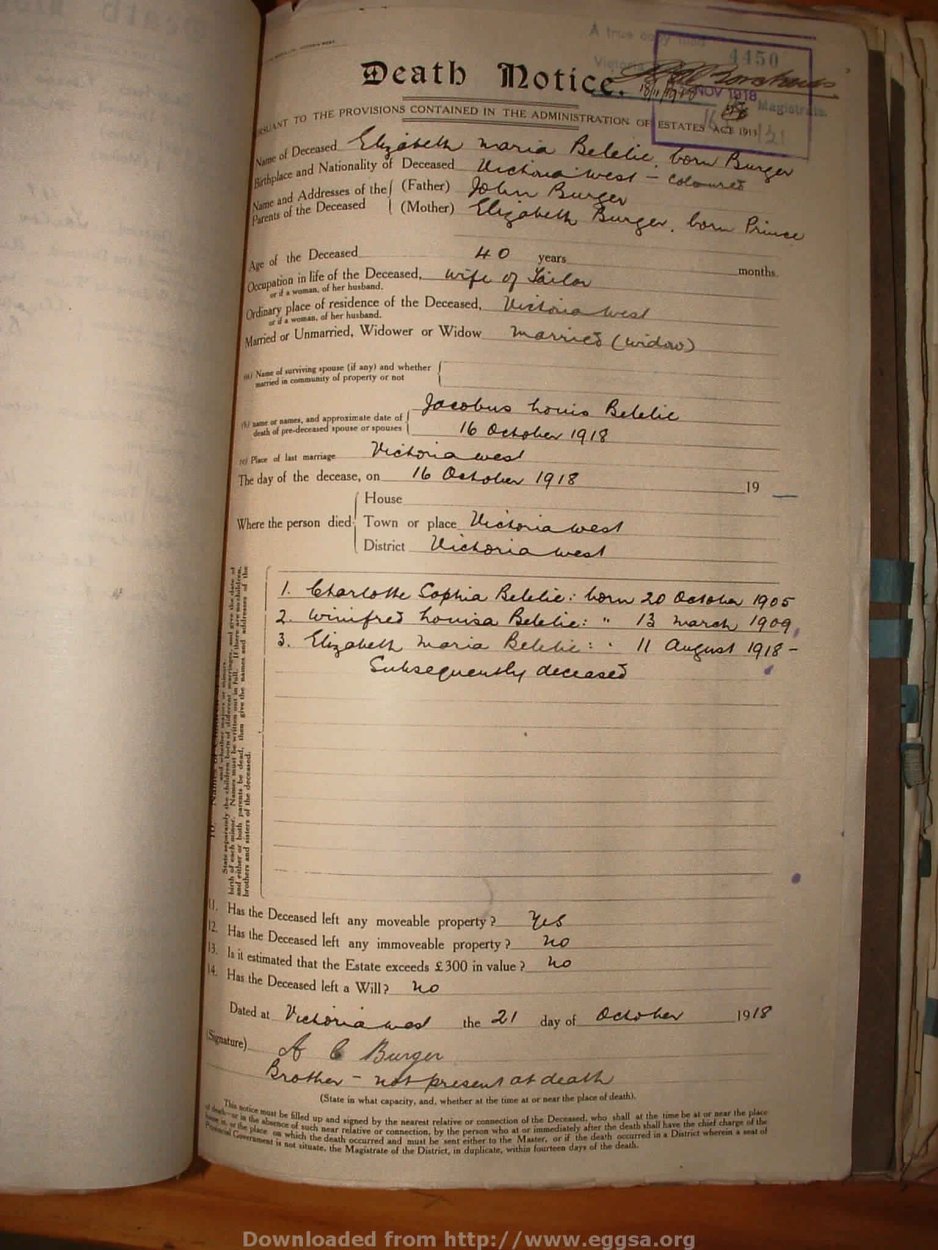 A true copy
4450
Death Notice.
NOV 1918
18/11/1918
Magistrate.
PURSUANT TO THE PROVISIONS CONTAINED IN THE ADMINISTRATION OF ESTATES ACT 1913
Name of Deceased Elizabeth Maria Belelie, born Burger
Birthplace and Nationality of Deceased Victoria West - Coloured
Name and Addresses of the Parents of the Deceased (Father) John Burger
(Mother) Elizabeth Burger, born Prince
Age of the Deceased 40 years months.
Occupation in life of the Deceased, wife of Tailor
or if a woman, of her husband.
Ordinary place of residence of the Deceased, Victoria West
or if a woman, of her husband.
Married or Unmarried, Widower or Widow Married (widow)
(a) Name of surviving spouse (if any) and whether
married in community of property or not
(b) name or names, and approximate date of Jacobus Louis Belelie
death of pre-deceased spouse or spouses 16 October 1918
(c) Place of last marriage Victoria West
The day of the decease, on 16 October 1918 19
Where the person died House
Town or place Victoria West
District Victoria West
1. Charlotte Sophia Belelie: born 20 October 1905
2. Winifred Louisa Belelie: " 13 March 1909
3. Elizabeth Maria Belelie: " 11 August 1918 -
Subsequently deceased
State separately the children born of different marriages, and give the date of
birth of each minor. Names must be written out in full. If there are no children,
and either or both parents be dead, then give the names and addresses of the
brothers and sisters of the deceased.
11. Has the Deceased left any moveable property? Yes
12. Has the Deceased left any immoveable property? No
13. Is it estimated that the Estate exceeds £300 in value? No
14. Has the Deceased left a Will? No
Dated at Victoria West the 21 day of October 1918
(Signature) A C Burger
Brother - not present at death
(State in what capacity, and, whether at the time at or near the place of death).
This notice must be filled up and signed by the nearest relative or connection of the Deceased, who shall at the time be at or near the place
of death—or in the absence of such near relative or connection, by the person who at or immediately after the death shall have the chief charge of the
house in, or the place on which the death occurred and must be sent either to the Master, or if the death occurred in a District wherein a seat of
Provincial Government is not situate, the Magistrate of the District, in duplicate, within fourteen days of the death.
Downloaded from http://www.eggsa.org